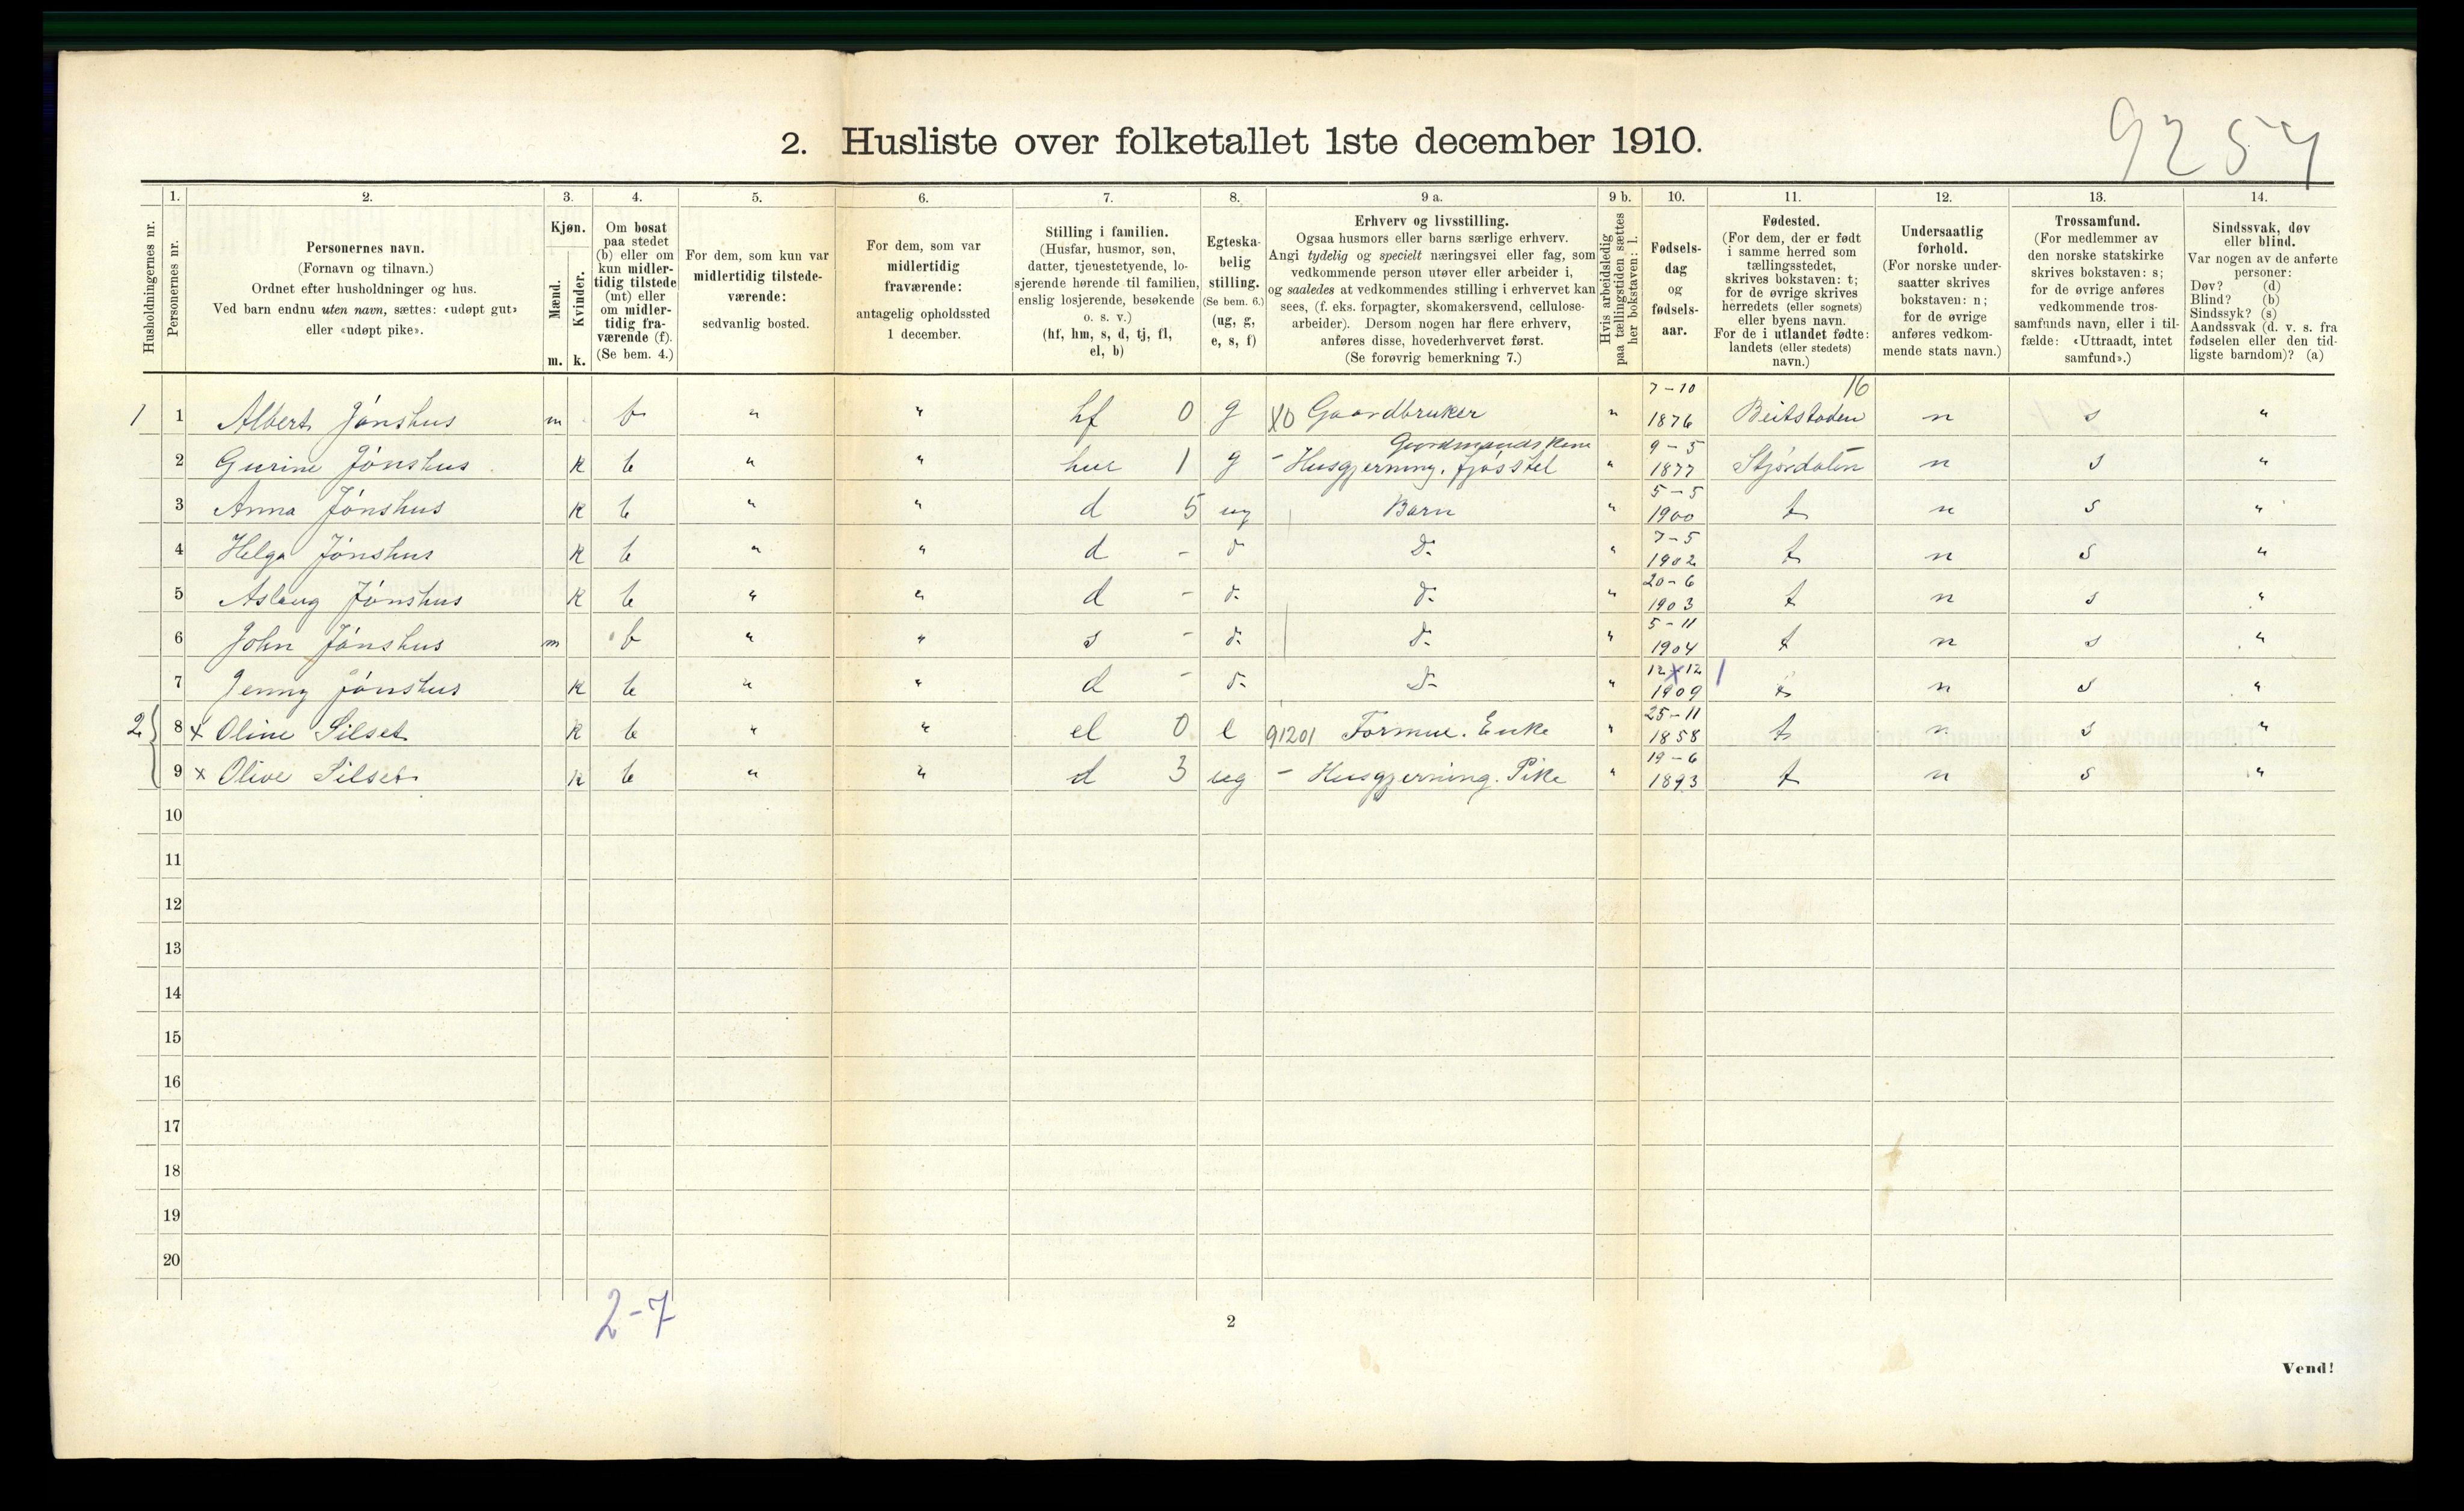 9257
2. Husliste over folketallet 1ste december 1910.
Husholdningernes nr.
1.
Personernes nr.
2.
Personernes navn.
(Fornavn og tilnavn.)
Ordnet efter husholdninger og hus.
Ved barn endnu uten navn, sættes: «udøpt gut»
eller «udøpt pike».
3.
Kjøn.
Mænd.
m.
Kvinder.
k.
4.
Om bosat
paa stedet
(b) eller om
kun midler-
tidig tilstede
(mt) eller
om midler-
tidig fra-
værende (f).
(Se bem. 4.)
5.
For dem, som kun var
midlertidig tilstede-
værende:
sedvanlig bosted.
6.
For dem, som var
midlertidig
fraværende:
antagelig opholdssted
1 december.
7.
Stilling i familien.
(Husfar, husmor, søn,
datter, tjenestetyende, lo-
sjerende hørende til familien,
enslig losjerende, besøkende
o. s. v.)
(hf, hm, s, d, tj, fl,
el, b)
8.
Egteska-
belig
stilling.
(Se bem. 6.)
(ug, g,
e, s, f)
9 a.
Erhverv og livsstilling.
Ogsaa husmors eller barns særlige erhverv.
Angi tydelig og specielt næringsvei eller fag, som
vedkommende person utøver eller arbeider i,
og saaledes at vedkommendes stilling i erhvervet kan
sees, (f. eks. forpagter, skomakersvend, cellulose-
arbeider). Dersom nogen har flere erhverv,
anføres disse, hovederhvervet først.
(Se forøvrig bemerkning 7.)
9 b.
Hvis arbeidsledig
paa tællingstiden sættes
her bokstaven: l.
10.
Fødsels-
dag
og
fødsels-
aar.
11.
Fødested.
(For dem, der er født
i samme herred som
tællingsstedet,
skrives bokstaven: t;
for de øvrige skrives
herredets (eller sognets)
eller byens navn.
For de i utlandet fødte:
landets (eller stedets)
navn.)
12.
Undersaatlig
forhold.
(For norske under-
saatter skrives
bokstaven: n;
for de øvrige
anføres vedkom-
mende stats navn.)
13.
Trossamfund.
(For medlemmer av
den norske statskirke
skrives bokstaven: s;
for de øvrige anføres
vedkommende tros-
samfunds navn, eller i til-
fælde: «Uttraadt, intet
samfund».)
14.
Sindssvak, døv
eller blind.
Var nogen av de anførte
personer:
Døv? (d)
Blind? (b)
Sindssyk? (s)
Aandssvak (d. v. s. fra
fødselen eller den tid-
ligste barndom)? (a)
1 1 Albert Jónshus m b " " hf 0 g X0 Gaardbruker " 7-10 1876 Beitstaden 16 n s "
2 Gurine Jónshus k b " " hm 1 g - Husgjerning. fjósstel Gaardmandskone " 9-5 1877 Stjórdalen n s "
3 Anna Jónshus k b " " d 5 ug Barn " 5-5 1900 t n s "
4 Helga Jónshus k b " " d - d- d- " 7-5 1902 t n s "
5 Aslaug Jónshus k b " " d - d- d- " 20-6 1903 t n s "
6 John Jónshus m b " " s - d- d- " 5-11 1904 t n s "
7 Jenny Jónshus k b " " d - d- d- " 12-12 1909 t n s "
2 8 x Oline Silset k b " " el 0 e 91201 Formue. Enke " 25-11 1858 t n s "
9 x Olive Silset k b " " d 3 ug - Husgjerning. Pike " 19-6 1893 t n s "
10
11
12
13
14
15
16
17
18
19
20
2-7
2
Vend!